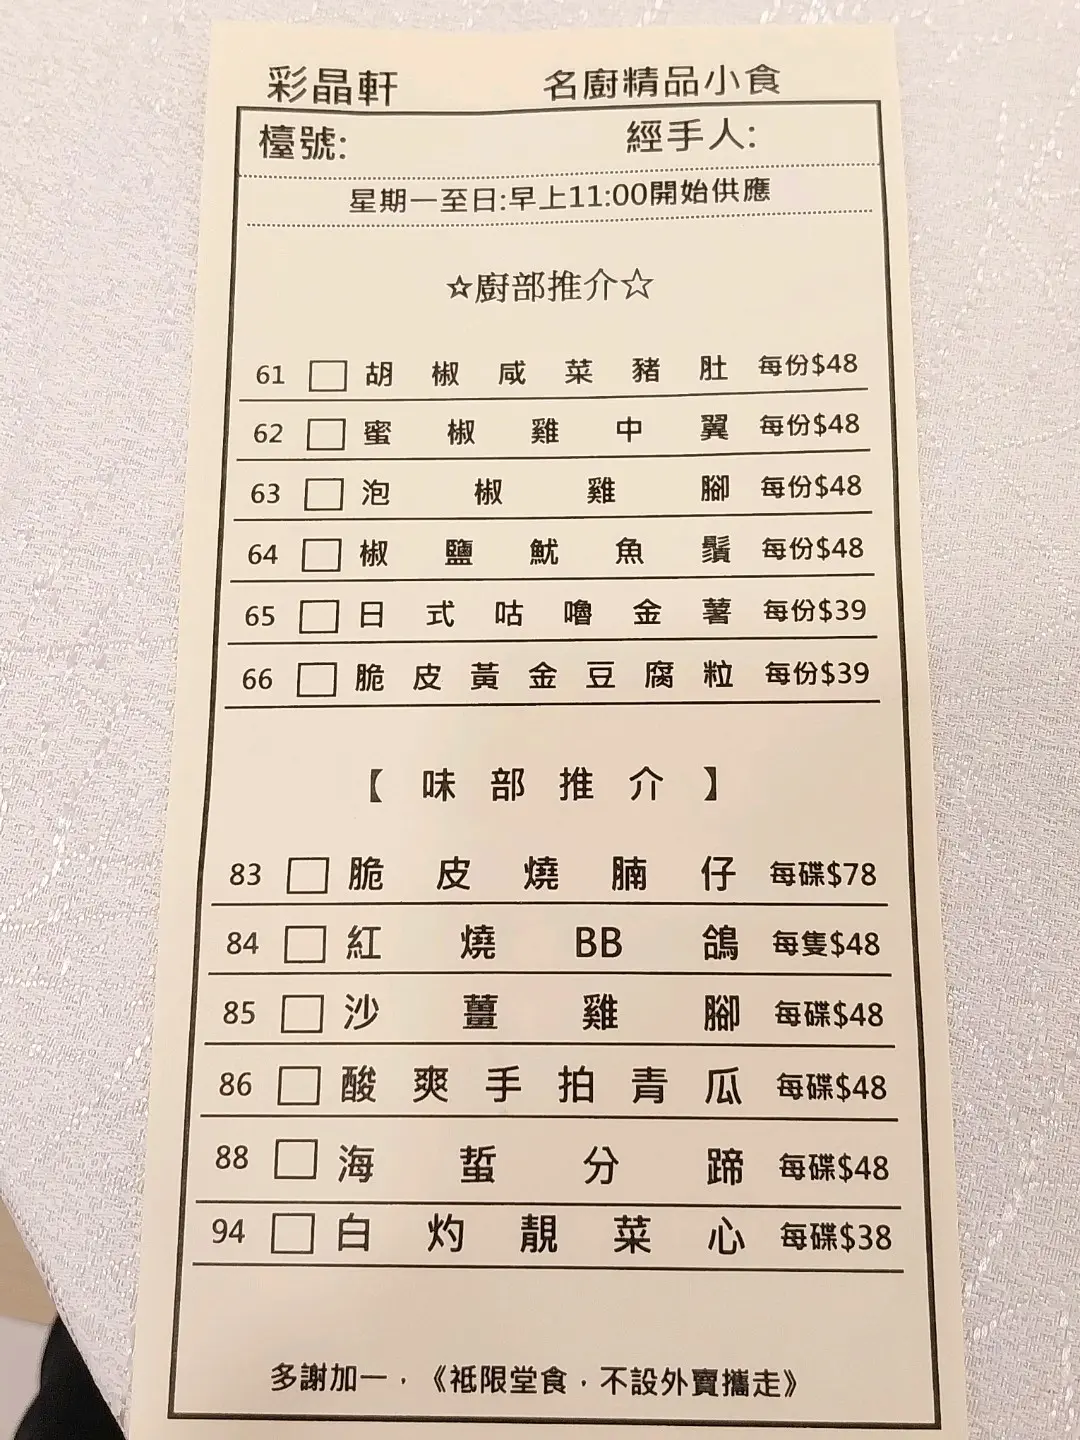 彩晶軒 名廚精品小食
檯號: 經手人:
星期一至日:早上11:00開始供應
☆廚部推介☆
61 □ 胡椒咸菜豬肚 每份$48
62 □ 蜜椒雞中翼 每份$48
63 □ 泡椒雞腳 每份$48
64 □ 椒鹽魷魚鬚 每份$48
65 □ 日式咕嚕金薯 每份$39
66 □ 脆皮黃金豆腐粒 每份$39
【味部推介】
83 □ 脆皮燒腩仔 每碟$78
84 □ 紅燒BB鴿 每隻$48
85 □ 沙薑雞腳 每碟$48
86 □ 酸爽手拍青瓜 每碟$48
88 □ 海蜇分蹄 每碟$48
94 □ 白灼靚菜心 每碟$38
多謝加一，《祗限堂食，不設外賣攜走》